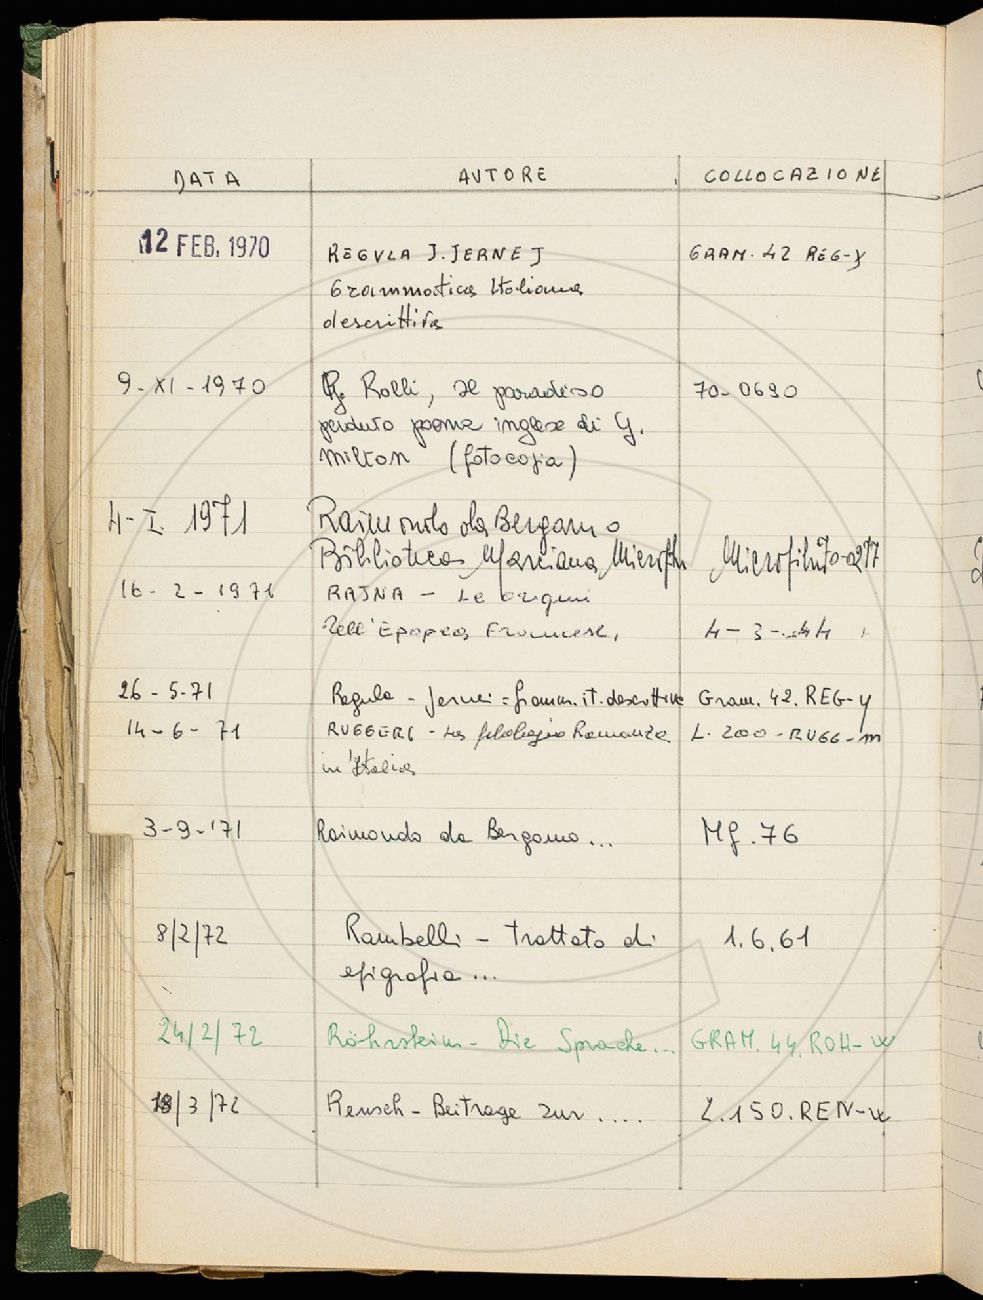 DATA AUTORE COLLOCAZIONE
12 FEB. 1970 REGULA J. JERNEJ GRAM. 42 REG-y
Grammatica Italiana
descrittiva
9-XI-1970 P. Rolli, Il paradiso 70-0690
perduto poema inglese di G.
Milton (fotocopia)
4-I 1971 Raimondo da Bergamo
Biblioteca Marciana Microfilm Microfilm 70-0277
16-2-1971 RAJNA - Le origini
dell'Epopea Francese, 4-3-44
26-5-71 Regula - Jernei = Gramm. it. descrittiva Gram. 42. REG-y
14-6-71 RUGGERI - La filologia Romanza L. 200-RUGG-m
in Italia
3-9-'71 Raimondo da Bergamo ... Mf. 76
8/2/72 Rambelli - Trattato di 1.6.61
epigrafia ...
24/2/72 Röhrstein - Die Sprache... GRAM. 44. ROH-w
18/3/72 Rensch - Beitrage zur .... L.150.REN-w